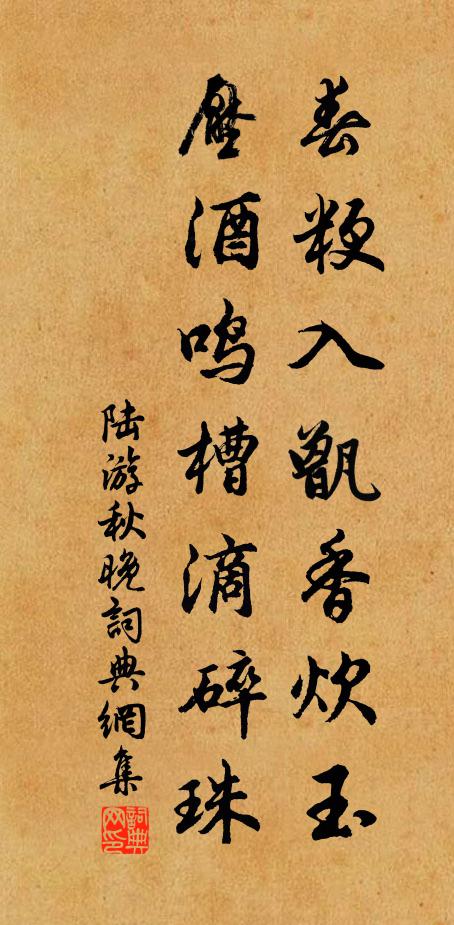 舂粳入甑香炊玉
壓酒鸣槽滴碎珠
陆游秋晚詞典網集
詞典网印